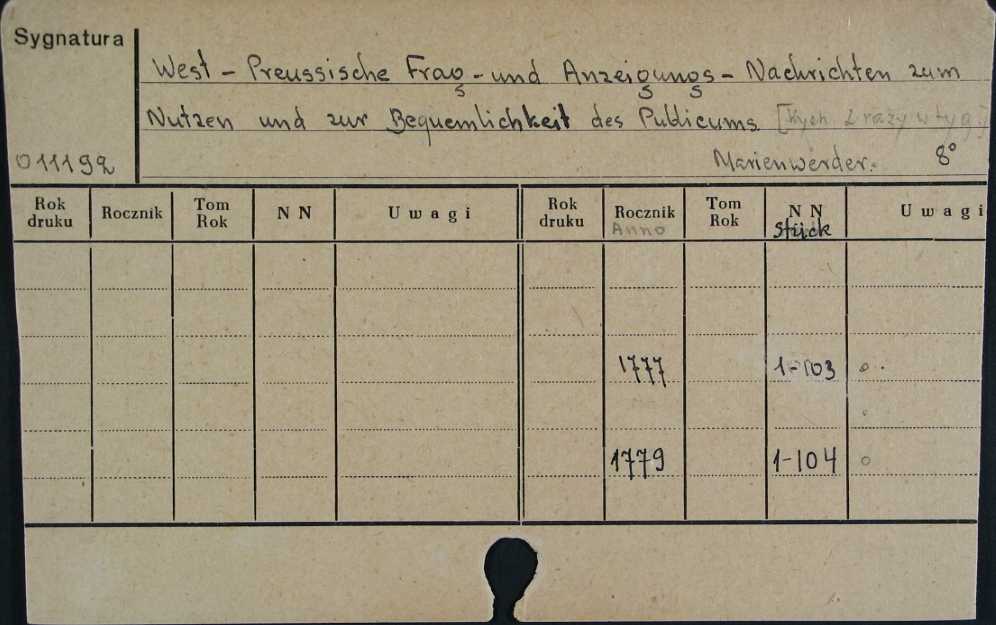 Sygnatura
West - Preussische Frag - und Anzeigungs - Nachrichten zum
Nutzen und zur Bequemlichkeit des Publicums. [Wych. 2 razy w tyg.]
011192 Marienwerder. 8°
Rok druku Rocznik Tom Rok N N Uwagi Rok druku Rocznik Anno Tom Rok N N Stück Uwagi
1777 1-103
1779 1-104